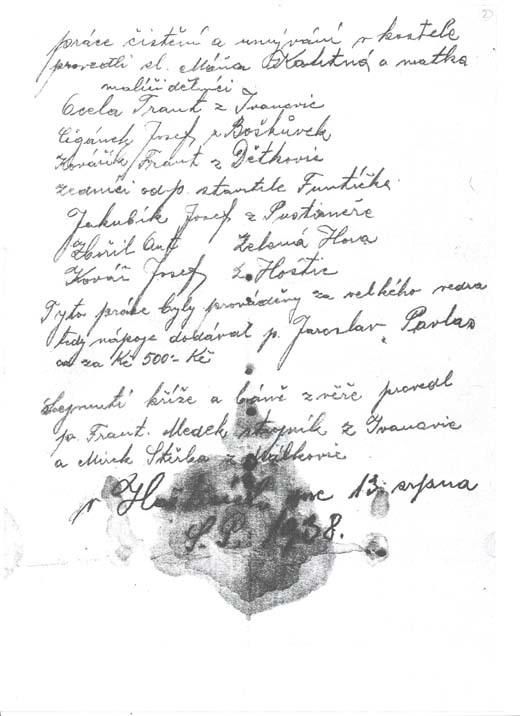 práce čistění a umývání v kostele
provedli sl. Máňa Kalitná a matka
malíři dělníci
Ocela Frant z Ivanovic
Cigánek Josef z Boškůvek
Kovářík Frant z Dětkovic
zedníci od p. stavitele Funtíčka
Jakubík Josef z Pustiměře
Zbořil Ant Zelená Hora
Kovář Josef z Hoštic
Tyto práce byly prováděny za velkého vedra
tedy nápoje dodával p. Jaroslav Pavlas
za Kč 500 - Kč
Sejmutí kříže a báně z věže provedl
p. Frant. Medek strojník z Ivanovic
a Mirek Skřba z Málkovic
v dne 13. srpna
L. P. 1938.